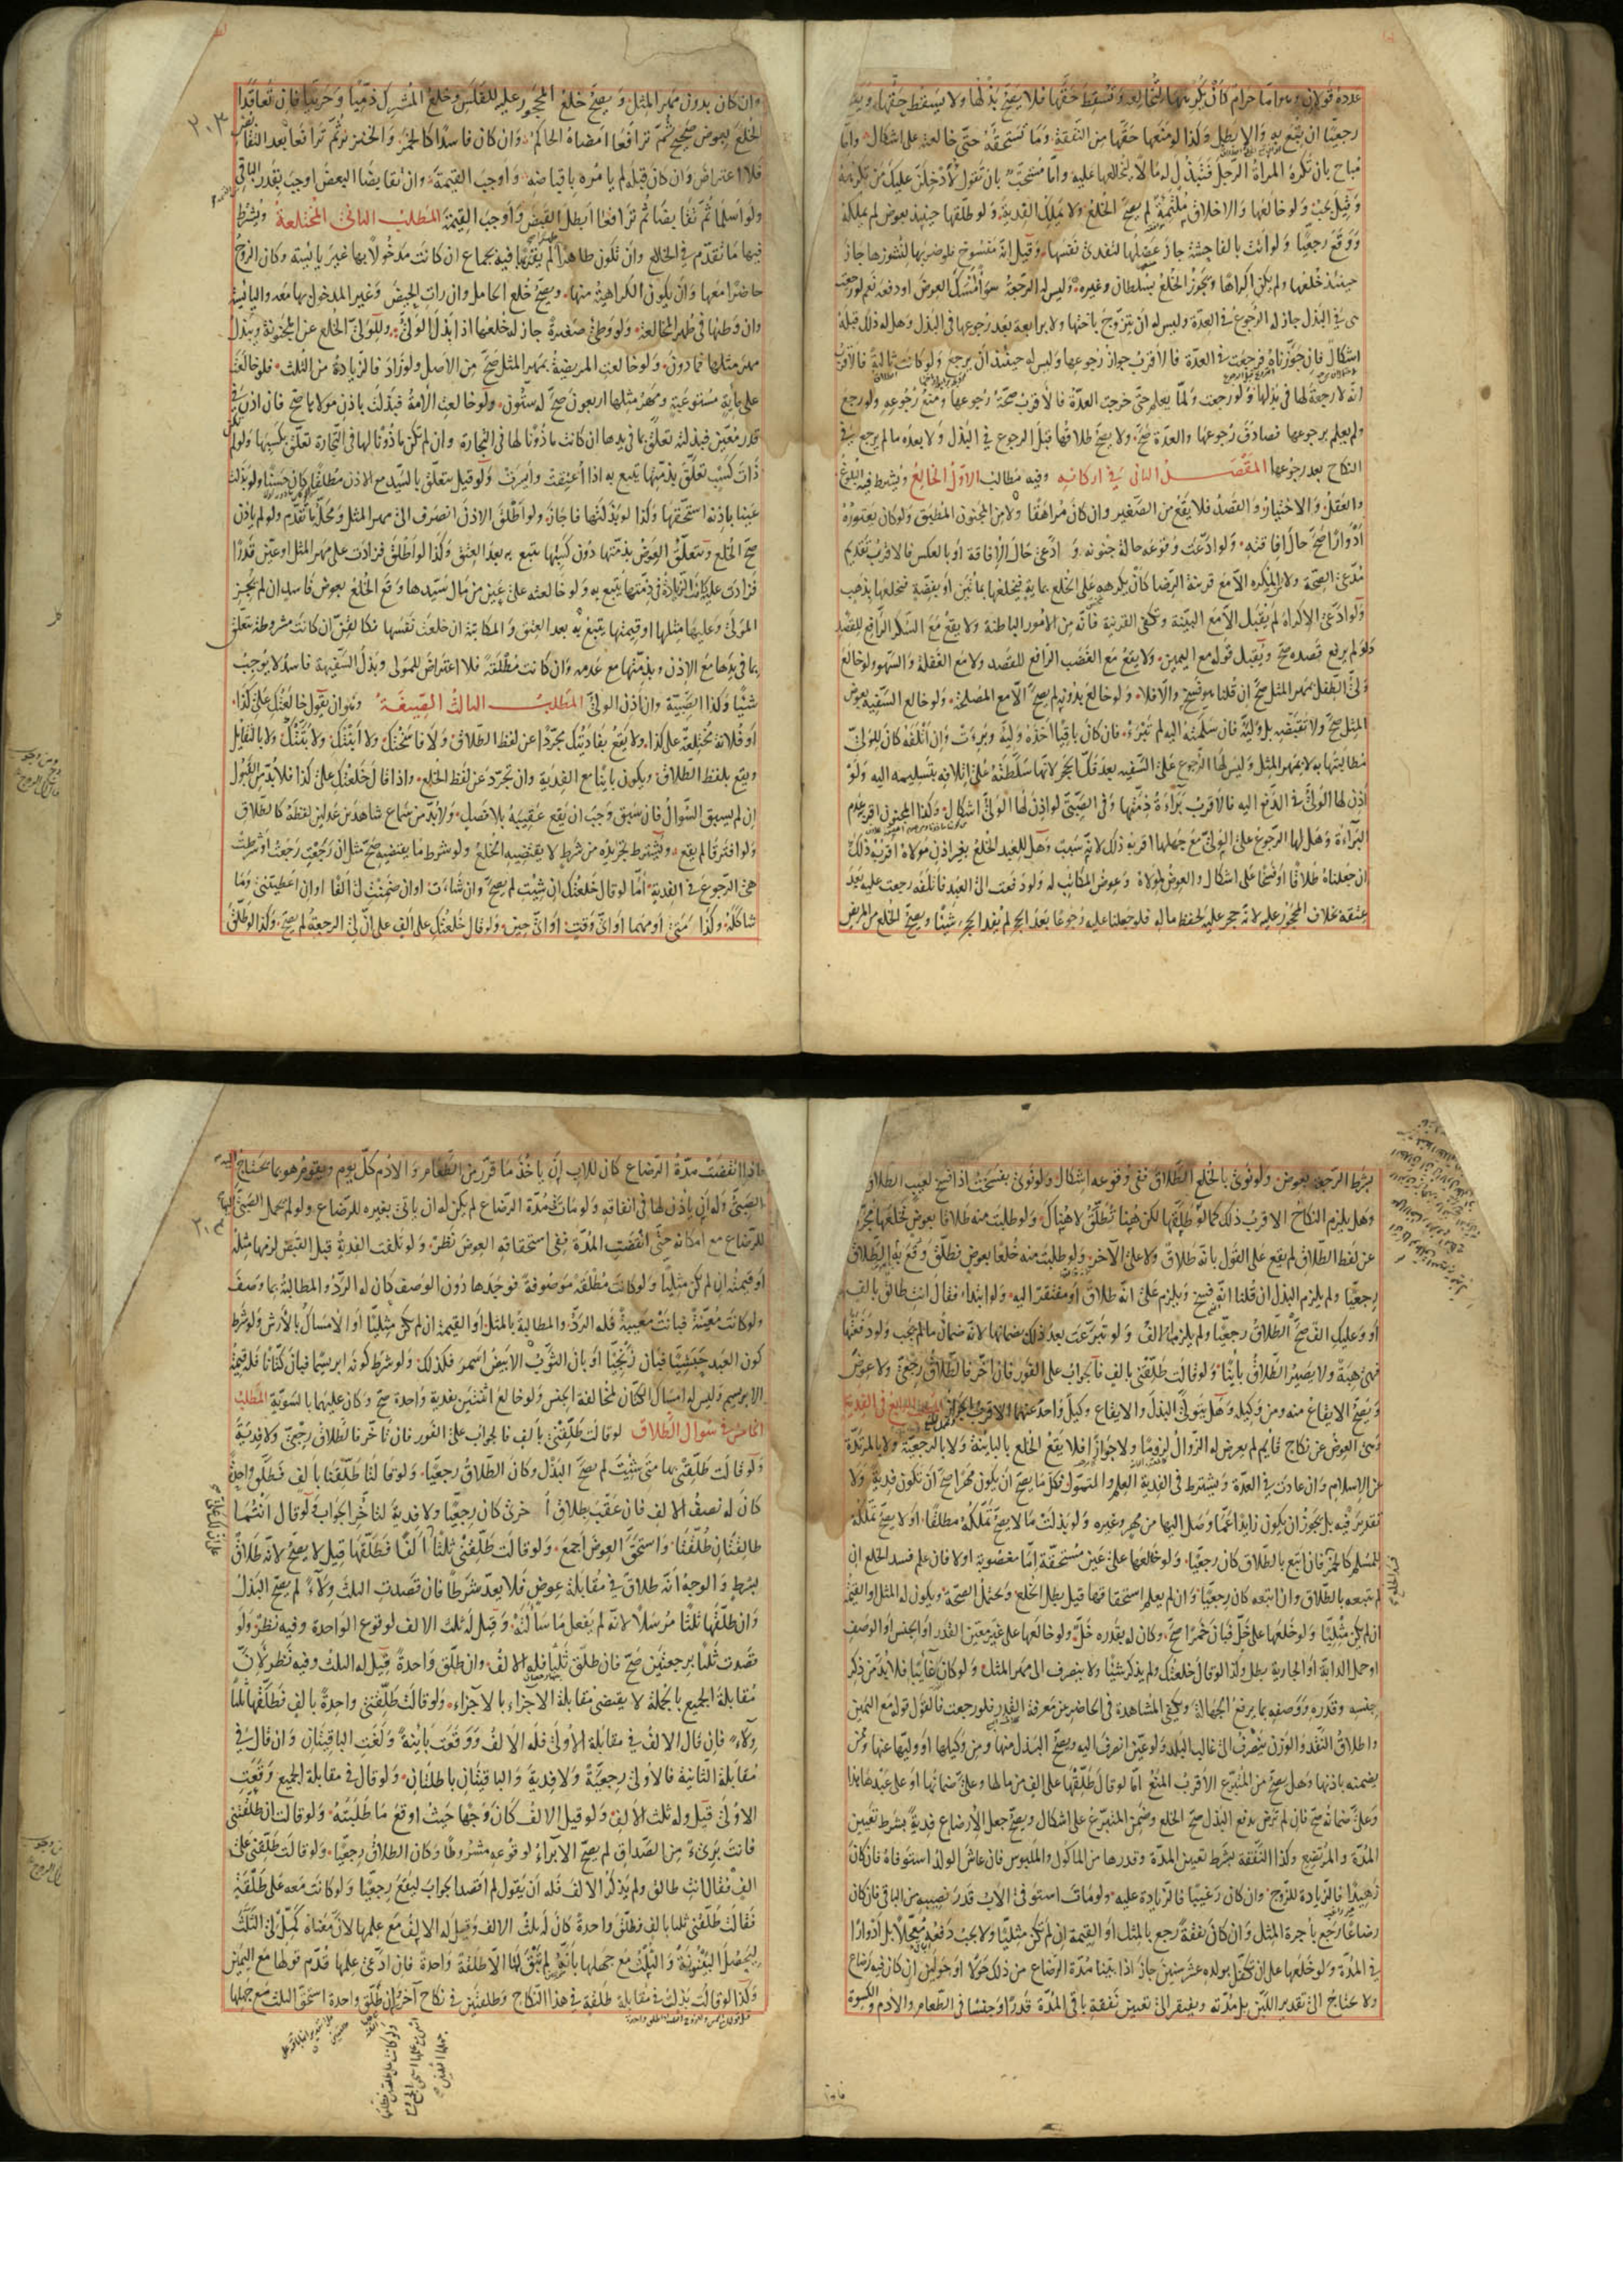 عدده قولان واما حرام كأن يكرهها لتخالعه وتسقط حقها فلا يصح بذلها ولا يسقط حقها ويقع
رجعيا ان يتبع به والا بطل وكذا لو منعها حقها من النفقة وما تستحقه حتى خالعته على اشكال واما
مباح بان تكره المرأة الرجل فتبذل له مالا ليخالعها عليه واما مستحب بان تقول لأدخلن عليك من تكرهه
وقيل يجب ولو خالعها والاخلاق ملتئمة لم يصح الخلع ولا يملك الفدية ولو طلقها حينئذ بعوض لم يملكه
ووقع رجعيا ولو اتت بالفاحشة جاز عضلها لتفدى نفسها وقيل انه منسوخ فلو ضربها للنشوز جاز
حينئذ خلعها ولم يكن اكراها ويجوز الخلع بسلطان وغيره وليس له الرجعة سواء امسك العوض او دفعه نعم لو رجعت
هى في البذل جاز له الرجوع في العدة وليس له ان يتزوج باختها ولا برابعة بعد رجوعها فى البذل وهل له ذلك قبله
اشكال فان جوزناه فرجعت فى العدة فالاقرب جواز رجوعها وليس له حينئذ ان يرجع ولو كانت ثالثة فالاقرب
انه لا رجعة لها فى بذلها ولو رجعت ولما يعلم حتى خرجت العدة فالاقرب صحة رجوعها ومنع رجوعه ولو رجع
ولم يعلم برجوعها فصادف رجوعها والعدة صح ولا يصح طلاقها قبل الرجوع في البذل ولا بعده ما لم يرجع في
النكاح بعد رجوعها المقصد الثانى في اركانه وفيه مطالب الاول الخالع ويشترط فيه البلوغ
والعقل والاختيار والقصد فلا يقع من الصغير وان كان مراهقا ولا من المجنون المطبق ولو كان يعتوره
ادوارا صح حال افاقته ولو ادعت وقوعه حالة جنونه وادعى حال الافاقة او بالعكس فالاقرب تقديم
مدعى الصحة ولا المكره الا مع قرينة الرضا كأن يكرهه على الخلع بماية فيخلعها بمائتين او بفضة فيخلعها بذهب
ولو ادعى الاكراه لم يقبل الا مع البينة وتكفى القرينة فانه من الامور الباطنة ولا يقع مع السكر الرافع للقصد
ولو لم يرفع قصده صح ويقبل قوله مع اليمين ولا يقع مع الغضب الرافع للقصد ولا مع الغفلة والسهو ولو خالع
ولى الطفل بمهر المثل صح ان قلنا هو فسخ والا فلا ولو خالع بدونه لم يصح الا مع المصلحة ولو خالع السفيه بعوض
المثل صح ولا تقبضه بل وليه فان سلمته اليه لم تبرء فان كان باقيا اخذه وليه وبرءت وان اتلفه كان للولى
مطالبتها به لا بمهر المثل وليس لها الرجوع على السفيه بعد فك الحجر لانها سلطته على اتلافه بتسليمه اليه ولو
اذن لها الولى في الدفع اليه فالاقرب براءة ذمتها وفى الصبى لو اذن لها الولى اشكال وكذا المجنون اقربه عدم
البراءة وهل لها الرجوع على الولى مع جهلها اقربه ذلك لانه سبب وهل للعبد الخلع بغير اذن مولاه اقربه ذلك
ان جعلناه طلاقا او فسخا على اشكال والعوض لمولاه وعوض المكاتب له ولو دفعت الى العبد فاتلفه رجعت عليه بعد
عتقه بخلاف المحجور عليه لانه حجر عليه لحفظ ماله فلو جعلنا عليه رجوعا بعد الحجر لم يفد الحجر شيئا ويصح الخلع من المريض
وان كان بدون مهر المثل ويصح خلع المحجور عليه للفلس وخلع المشرك ذميا وحربيا فان تعاقدا
الخلع بعوض صحيح ثم ترافعا امضاه الحاكم وان كان فاسدا كالخمر والخنزير ثم ترافعا بعد التقابض
فلا اعتراض وان كان قبله لم يامره باقباضه واوجب القيمة وان تقابضا البعض اوجب بقدر الباقى
ولو اسلما ثم تقابضا ثم ترافعا ابطل القبض واوجب القيمة المطلب الثانى المختلعة ويشترط
فيها ما تقدم في الخالع وان تكون طاهرا لم يقربها فيه بجماع ان كانت مدخولا بها غير يائسة وكان الزوج
حاضرا معها وان يكون الكراهية منها ويصح خلع الحامل وان رات الحيض وغير المدخول بها معه واليائسة
وان وطئها فى طهر المخالعة ولو وطئ صغيرة جاز له خلعها اذا بذل الولى وللولى الخلع عن المجنونة ويبذل
مهر مثلها فما دون ولو خالعت المريضة بمهر المثل صح من الاصل ولو زاد فالزيادة من الثلث فلو خالعت
على ماية مستوعبة ومهر مثلها اربعون صح له ستون ولو خالعت الامة فبذلت باذن مولاها صح فان اذن في
قدر معين فبذلته تعلق بما فى يدها ان كانت ماذونا لها فى التجارة وان لم تكن ماذونا لها فى التجارة تعلق بكسبها ولو لم تكن
ذات كسب تعلق بذمتها يتبع به اذا اعتقت وايسرت ولو قيل يتعلق بالسيد مع الاذن مطلقا كان حسنا ولو بذلت
عينا باذنه استحقها وكذا لو بذلتها فاجاز ولو اطلق الاذن انصرف الى مهر المثل ومحله ما تقدم ولو لم ياذن
صح الخلع ويتعلق العوض بذمتها دون كسبها يتبع به بعد العتق وكذا لو اطلق فزادت على مهر المثل او عين قدرا
فزادت عليه كانت الزيادة فى ذمتها يتبع به ولو خالعته على عين من مال سيدها وقع الخلع بعوض فاسد ان لم يجز
المولى وعليها مثلها او قيمتها يتبع به بعد العتق والمكاتبة ان خلعت نفسها فكالقن ان كانت مشروطة يتعلق
بما فى يدها مع الاذن وبذمتها مع عدمه وان كانت مطلقة فلا اعتراض للمولى وبذل السفيهة فاسد لا يوجب
شيئا وكذا الصبية وان اذن الولى المطلب الثالث الصيغة وهو ان يقول خالعتك على كذا
او فلانة مختلعة على كذا ولا يقع بفاديتك مجردا عن لفظ الطلاق ولا فاسختك ولا ابنتك ولا بتتك ولا بالتقايل
ويقع بلفظ الطلاق ويكون باينا مع الفدية وان تجرد عن لفظ الخلع واذا قال خلعتك على كذا فلا بد من القبول
ان لم يسبق السؤال فان سبق وجب ان يقع عقيبه بلا فصل ولا بد من سماع شاهدين عدلين لفظه كالطلاق
ولو افترقا لم يقع ويشترط تجريده من شرط لا يقتضيه الخلع ولو شرط ما يقتضيه صح مثل ان رجعت رجعت او شرطت
هى الرجوع فى الفدية اما لو قال خلعتك ان شئت لم يصح وان شاءت او ان ضمنت لى الفا او ان اعطيتنى وما
شاكله وكذا متى او مهما او اى وقت او اى حين ولو قال خلعتك على الف على ان لى الرجعة لم يصح وكذا لو طلق
بشرط الرجعة بعوض ولو نوى بالخلع الطلاق ففى وقوعه اشكال ولو نوى بفسخت اذا فسخ لعيب الطلاق
وهل يلزم النكاح الاقرب ذلك كما لو طلقها لكن هنا تطلق لا هناك ولو طلبت منه طلاقا بعوض فخلعها مجردا
عن لفظ الطلاق لم يقع على القول بانه طلاق ولا على الآخر ولو طلبت منه خلعا بعوض فطلق وقع به الطلاق
رجعيا ولم يلزم البذل ان قلنا انه فسخ ويلزم على انه طلاق او مفتقر اليه ولو ابتداء فقال انت طالق بالف
او وعليك الف صح الطلاق رجعيا ولم يلزمها الالف ولو تبرعت بعد ذلك بضمانها لانه ضمان ما لم يجب ولو دفعتها
فهى هبة ولا يصير الطلاق باينا ولو قالت طلقنى بالف فالجواب على الفور فان اخر فالطلاق رجعى ولا عوض
ويصح الايقاع منه ومن وكيله وهل يتولى البذل والايقاع وكيل واحد عنهما الاقرب الجواز المطلب الرابع فى الفدية
وهى العوض عن نكاح قايم لم يعرض له الزوال لزوما ولا جوازا فلا يقع الخلع بالباينة ولا بالرجعية ولا بالمرتدة
عن الاسلام وان عادت فى العدة ويشترط فى الفدية العلم والتمول فكل ما يصح ان يكون مهرا صح ان تكون فدية ولا
تقدير فيه بل يجوز ان يكون زايدا عما وصل اليها من مهر وغيره ولو بذلت ما لا يصح تملكه مطلقا او لا يصح تملكه
للمسلم كالخمر فان اتبع بالطلاق كان رجعيا ولو خالعها على عين مستحقة اما مغصوبة او لا فان علم فسد الخلع ان
لم يتبعه بالطلاق وان اتبعه كان رجعيا وان لم يعلم استحقاقها قيل يبطل الخلع ويحتمل الصحة ويكون له المثل او القيمة
ان لم يكن مثليا ولو خلعها على خل فبان خمرا صح وكان له بقدره خل ولو خالعها على غير معين القدر او الجنس او الوصف
او حمل الدابة او الجارية بطل وكذا لو قال خلعتك ولم يذكر شيئا ولا ينصرف الى مهر المثل ولو كان غايبا فلا بد من ذكر
جنسه وقدره ووصفه بما يرفع الجهالة ويكفى المشاهدة فى الحاضر عن معرفة القدر فلو رجعت فالقول قوله مع اليمين
واطلاق النقد والوزن ينصرف الى غالب البلد ولو عين انصرف اليه ويصح البذل منها ومن وكيلها او وليها عنها وممن
يضمنه باذنها وهل يصح من المتبرع الاقرب المنع اما لو قال طلقها على الف من مالها وعلى ضمانها او على عبدها هذا
وعلى ضمانه صح فان لم ترض بدفع البذل صح الخلع وضمن المتبرع على اشكال ويصح جعل الارضاع فدية بشرط تعيين
المدة والمرتضع وكذا النفقة بشرط تعيين المدة وقدرها من الماكول والملبوس فان عاش الولد استوفاه فان كان
زهيدا فالزيادة للزوج وان كان رغيبا فالزيادة عليه ولو مات استوفى الاب قدر نصيبه من الباقى فان كان
رضاعا رجع باجرة المثل وان كان نفقة رجع بالمثل او القيمة ان لم تكن مثليا ولا يجب دفعه معجلا بل ادوارا
في المدة ولو خلعها على ان تكفل بولده عشر سنين جاز اذا بينا مدة الرضاع من ذلك حولا او حولين ان كان فيه رضاع
ولا يحتاج الى تقدير اللبن بل مدته ويفتقر الى تعيين نفقة باقى المدة قدرا وجنسا فى الطعام والادم والكسوة
فاذا
فاذا انقضت مدة الرضاع كان للاب ان ياخذ ما قرر من الطعام والادم كل يوم ويقوم هو بما يحتاج اليه
الصبى وله ان ياذن لها فى انفاقه ولو مات فى مدة الرضاع لم يكن له ان ياتى بغيره للرضاع ولو لم يحمل الصبى اليها
للرضاع مع امكانه حتى انقضت المدة ففى استحقاقه العوض نظر ولو تلفت الفدية قبل القبض لزمها مثله
او قيمته ان لم تكن مثليا ولو كانت مطلقة موصوفة فوجدها دون الوصف كان له الرد والمطالبة بما وصف
ولو كانت معينة فبانت معيبة فله الرد والمطالبة بالمثل او القيمة ان لم تكن مثليا او الامساك بالارش ولو شرط
كون العبد حبشيا فبان زنجيا او بان الثوب الابيض اسمر فكذلك ولو شرط كونه ابريسما فبان كتانا فله قيمة
الابريسم وليس له امساك الكتان لمخالفة الجنس ولو خالع اثنتين بفدية واحدة صح وكان عليهما بالسوية المطلب
الخامس في سؤال الطلاق لو قالت طلقنى بالف فالجواب على الفور فان تأخر فالطلاق رجعى ولا فدية
ولو قالت طلقنى بها متى شئت لم يصح البذل وكان الطلاق رجعيا ولو قالتا طلقنا بالف فطلق واحدة
كان له نصف الالف فان عقب بطلاق الاخرى كان رجعيا ولا فدية لتاخر الجواب ولو قال انتما
طالقتان طلقتا واستحق العوض اجمع ولو قالت طلقنى ثلثا بالف فطلقها قيل لا يصح لانه طلاق
بشرط والوجه انه طلاق في مقابلة عوض فلا يعد شرطا فان قصدت الثلث ولاء لم يصح البذل
وان طلقها ثلثا مرسلا لانه لم يفعل ما سألته وقيل له ثلث الالف لوقوع الواحدة وفيه نظر ولو
قصدت ثلثا برجعتين صح فان طلق ثلثا فله الالف وان طلق واحدة قيل له الثلث وفيه نظر لان
مقابلة الجميع بالجملة لا يقتضى مقابلة الاجزاء بالاجزاء ولو قالت طلقنى واحدة بالف فطلقها ثلثا
ولاء فان قال الالف في مقابلة الاولى فله الالف ووقعت باينة ولغت الباقيتان وان قال في
مقابلة الثانية فالاولى رجعية ولا فدية والباقيتان باطلتان ولو قال فى مقابلة الجميع وقعت
الاولى قيل وله ثلث الالف ولو قيل الالف كان وجها حيث اوقع ما طلبته ولو قالت ان طلقتنى
فانت برىء من الصداق لم يصح الابراء لوقوعه مشروطا وكان الطلاق رجعيا ولو قالت طلقنى على
الف فقال انت طالق ولم يذكر الالف فله ان يقول لم اقصد الجواب ليقع رجعيا ولو كانت معه على طلقة
فقالت طلقنى ثلثا بالف فطلق واحدة كان له ثلث الالف وقيل له الالف مع علمها لان معناه كمل لى الثلث
ليحصل البينونة والثلث مع جهلها بانه لم يبق لها الا طلقة واحدة فان ادعى علمها قدم قولها مع اليمين
وكذا لو قالت بذلت فى مقابلة طلقة في هذا النكاح وطلقتين في نكاح آخر وان طلق واحدة استحق الثلث مع جهلها